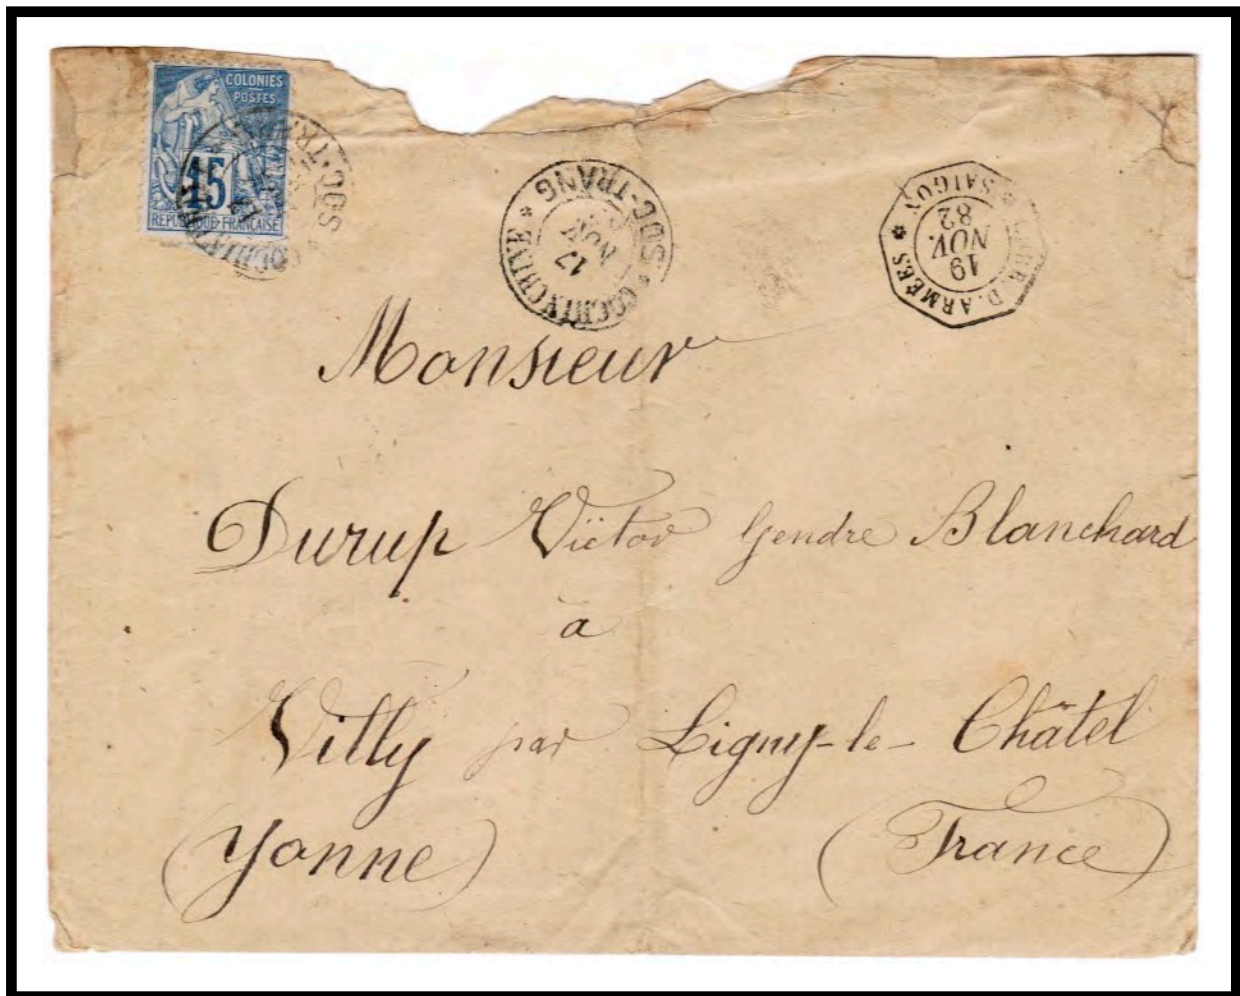 COLONIES
POSTES
15
REPUBLIQUE FRANÇAISE
SOC-TRANG
SOC-TRANG * COCHINCHINE *
17
NOV
CORR. D. ARMÉES * SAIGON *
19
NOV.
82
Monsieur
Durup Victor Gendre Blanchard
à
Villy par Ligny-le-Châtel
(Yonne) (France)